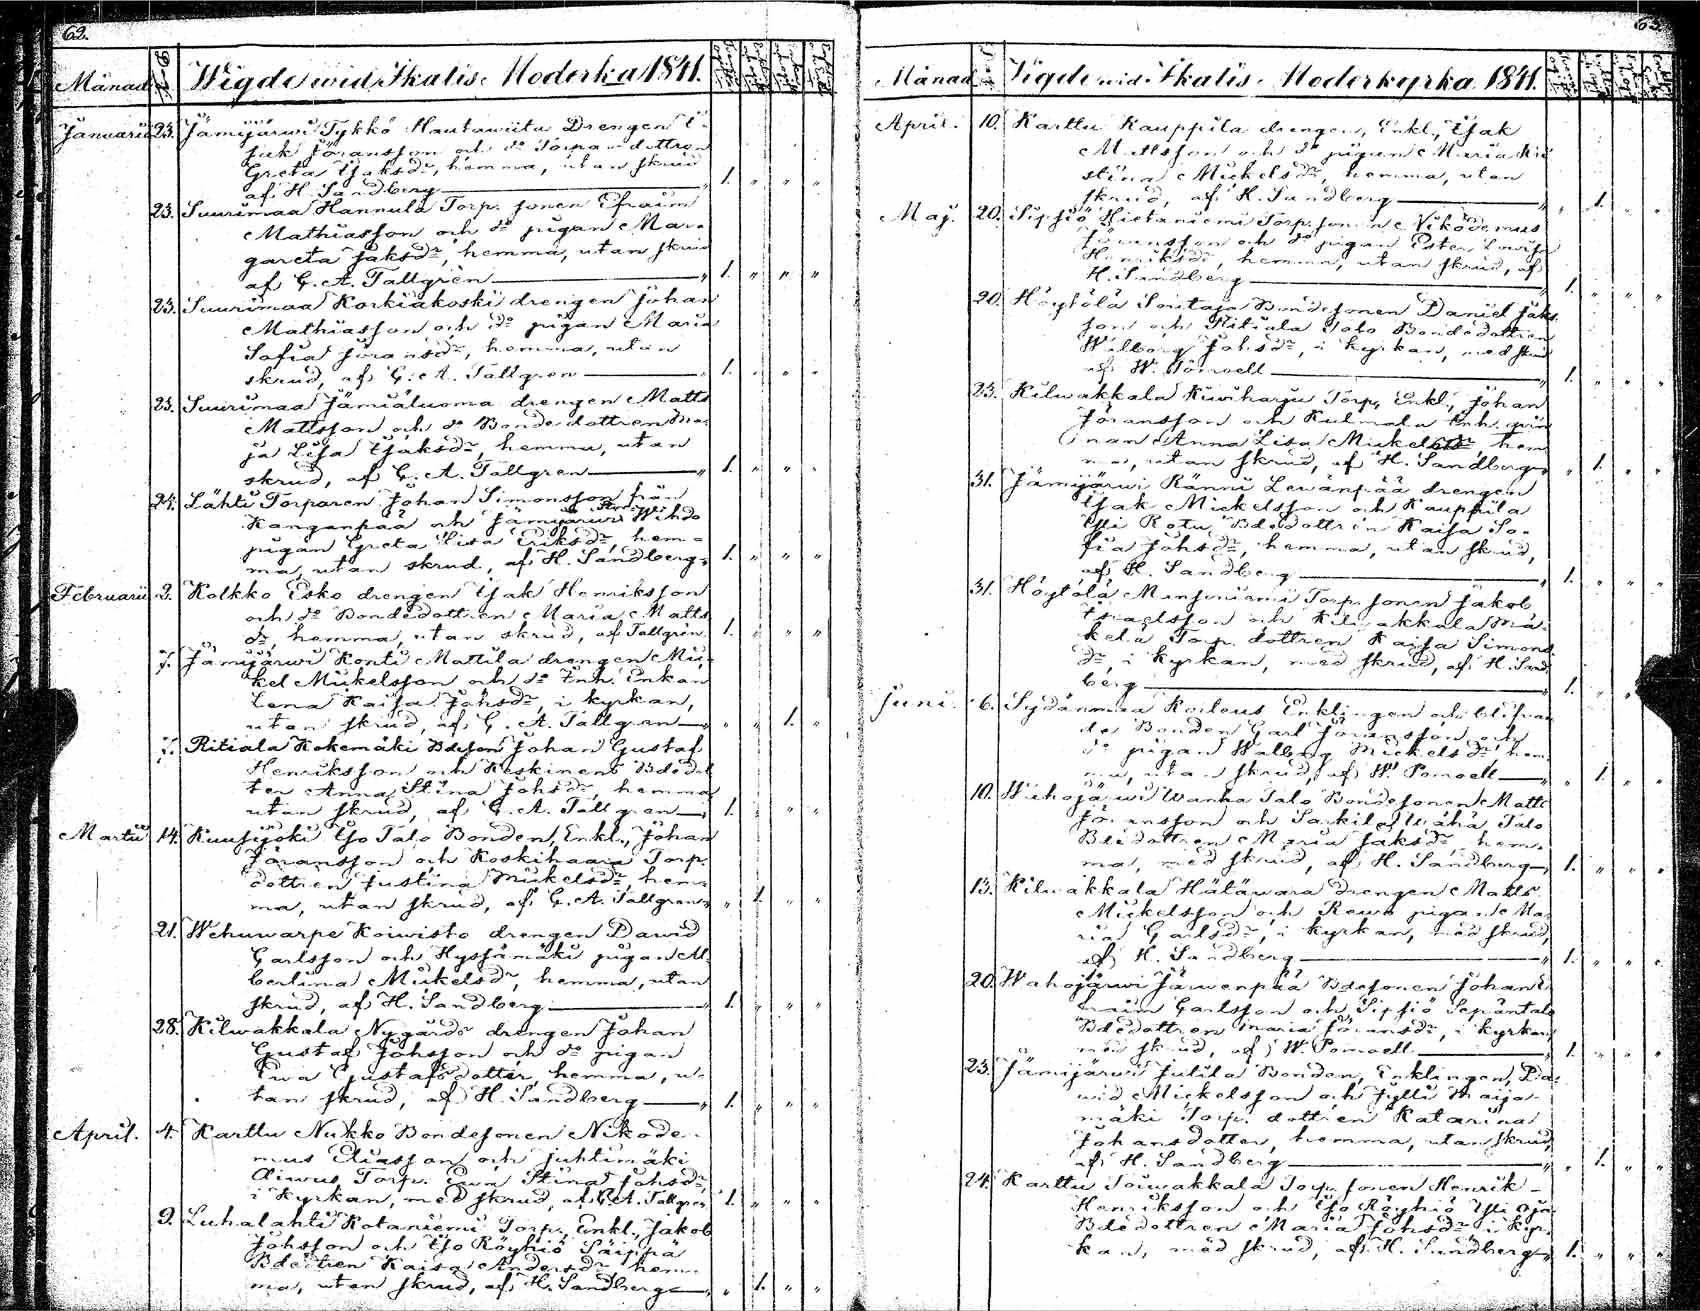 62.
Månad Wigde wid Ikalis Moderka 1841.
Januarii 23. Jämijärwi Tykkö Hautawiita Drengen I-
sak Jöransson och do Torparedottren
Greta Isaksdr, hemma, utan skrud
af H. Sandberg 1. " " "
23. Suurimaa Hannula Torp. sonen Efraim
Mathiasson och do pigan Mar-
gareta Jaksdr, hemma, utan skrud
af G. A. Tallgrén 1. " " "
23. Suurimaa Korkiakoski drengen Johan
Mathiasson och do pigan Maria
Sofia Jöransdr, hemma, utan
skrud, af G. A. Tallgren 1. " " "
23. Suurimaa Jämiäluoma drengen Matts
Mattsson och do Bondedottren Ma-
ja Lisa Isaksdr, hemma, utan
skrud, af G. A. Tallgren 1. " " "
24. Lähti Torparen Johan Simonsson från
Kanganpää och Jämijärwi Wihdo
pigan Greta Lisa Eriksdr, hem-
ma, utan skrud, af H. Sandberg 1. " " "
Februarii 2. Kolkko Esko drengen Isak Henriksson
och do Bondedottren Maria Matts
dr, hemma, utan skrud, af Tallgrén 1. " " "
7. Jämijärwi Konti Mattila drengen Mic-
kel Mickelsson och do Inh. Enkan
Lena Kaisa Johsdr, i kyrkan,
utan skrud, af G. A. Tallgren " " 1. "
7. Ritiala Kokemäki Bdesonen Johan Gustaf
Henriksson och Keskinen Bdedot
ter Anna Stina Johsdr, hemma
utan skrud, af G. A. Tallgren 1. " " "
Martii 14. Kuusijoki Iso Talo Bonden, Enkl., Johan
Jöransson och Koskihaara Torp.
dottren Justina Mickelsdr, hem-
ma, utan skrud, af G. A. Tallgren " 1. " "
21. Wehuwarpe Koiwisto drengen Dawid
Carlsson och Hyssämäki pigan Al
bertina Mickelsdr, hemma, utan
skrud, af H. Sandberg 1. " " "
28. Kilwakkala Nygårds drengen Johan
Gustaf Johsson och do pigan
Ewa Gustafsdotter, hemma, u-
tan skrud, af H. Sandberg 1. " " "
April. 4. Karttu Nukko Bondesonen Nikode-
mus Eliasson och Juhtimäki
Torp. Ewa Stina Johsdr,
i kyrkan, med skrud, af G. A. Tallgren 1. " " "
9. Luhalahti Kotaniemi Torp., Enkl., Jakob
Johsson och Iso Röyhiö Säippä
Bdedttren Kaisa Andersdr hem-
ma, utan skrud, af H. Sandberg " 1. " "
63.
Månad Vigde wid Ikalis Moderkyrka 1841.
April. 10. Karttu Kauppila drengen, Enkl., Isak
Mattsson och do pigan Maria Kri
stina Mickelsdr, hemma, utan
skrud, af H. Sandberg " 1. " "
Maj. 20. Sipsiö Hietaniemi Torp. sonen Nikodemus
Jöransson och do pigan Ester Lovisa
Henriksdr, hemma, utan skrud, af
H. Sandberg 1. " " "
20. Höytölä Sontaja Bondesonen Daniel Jaks
son och Ritiala Talo Bondedottren
Walborg Johsdr, i kyrkan, med skrud
af W. Pomoell 1. " " "
23. Kilwakkala Kiwiharju Torp., Enkl., Johan
Jöransson och Kulmala Inh. qwin
nan Anna Lisa Mickelsdr, hem
ma, utan skrud, af H. Sandberg " 1. " "
31. Jämijärwi Ränni Lewänpää drengen
Isak Mickelsson och Kauppila
Yli Rotu Bdedottren Kaisa So-
fia Johsdr, hemma, utan skrud,
af H. Sandberg 1. " " "
31. Höytölä Mansoniemi Torp. sonen Jakob
Israelsson och Kilwakkala Mä-
kelä Torp. dottren Kaisa Simons
dr, i kyrkan, med skrud, af H. Sand
berg 1. " " "
Juni. 6. Sydänmaa Enklingen och blifwan
de Bonden Carl Jöransson och
do pigan Walborg Mickelsdr hem
ma, utan skrud, af W. Pomoell " 1. " "
10. Wahojärwi Wanha Talo Bondesonen Matts
Jöransson och Sarkila Wähä Talo
Bdedottren Maria Jaksdr hem-
ma, med skrud, af H. Sandberg 1. " " "
13. Kilwakkala Hätäwara drengen Matts
Mickelsson och Rewo pigan Ma-
ria Carlsdr, i kyrkan, med skrud,
af H. Sandberg 1. " " "
20. Wahojärwi Järwenpää Bdesonen Johan E
fraim Carlsson och Sipsiö Sepäntalo
Bdedottren Maria Jöransdr, i kyrkan,
med skrud, af W. Pomoell 1. " " "
23. Jämijärwi Jutila Bonden, Enklingen, Da-
wid Mickelsson och Jylli Maija
mäki Torp. dottren Katarina
Johansdotter, hemma, utan skrud,
af H. Sandberg " 1. " "
24. Karttu Toiwakkala Torp. sonen Henrik
Henriksson och Iso Röyhiö Yli Oja
Bdedottren Maria Johsdr i kyr-
kan, med skrud, af H. Sandberg 1. " " "